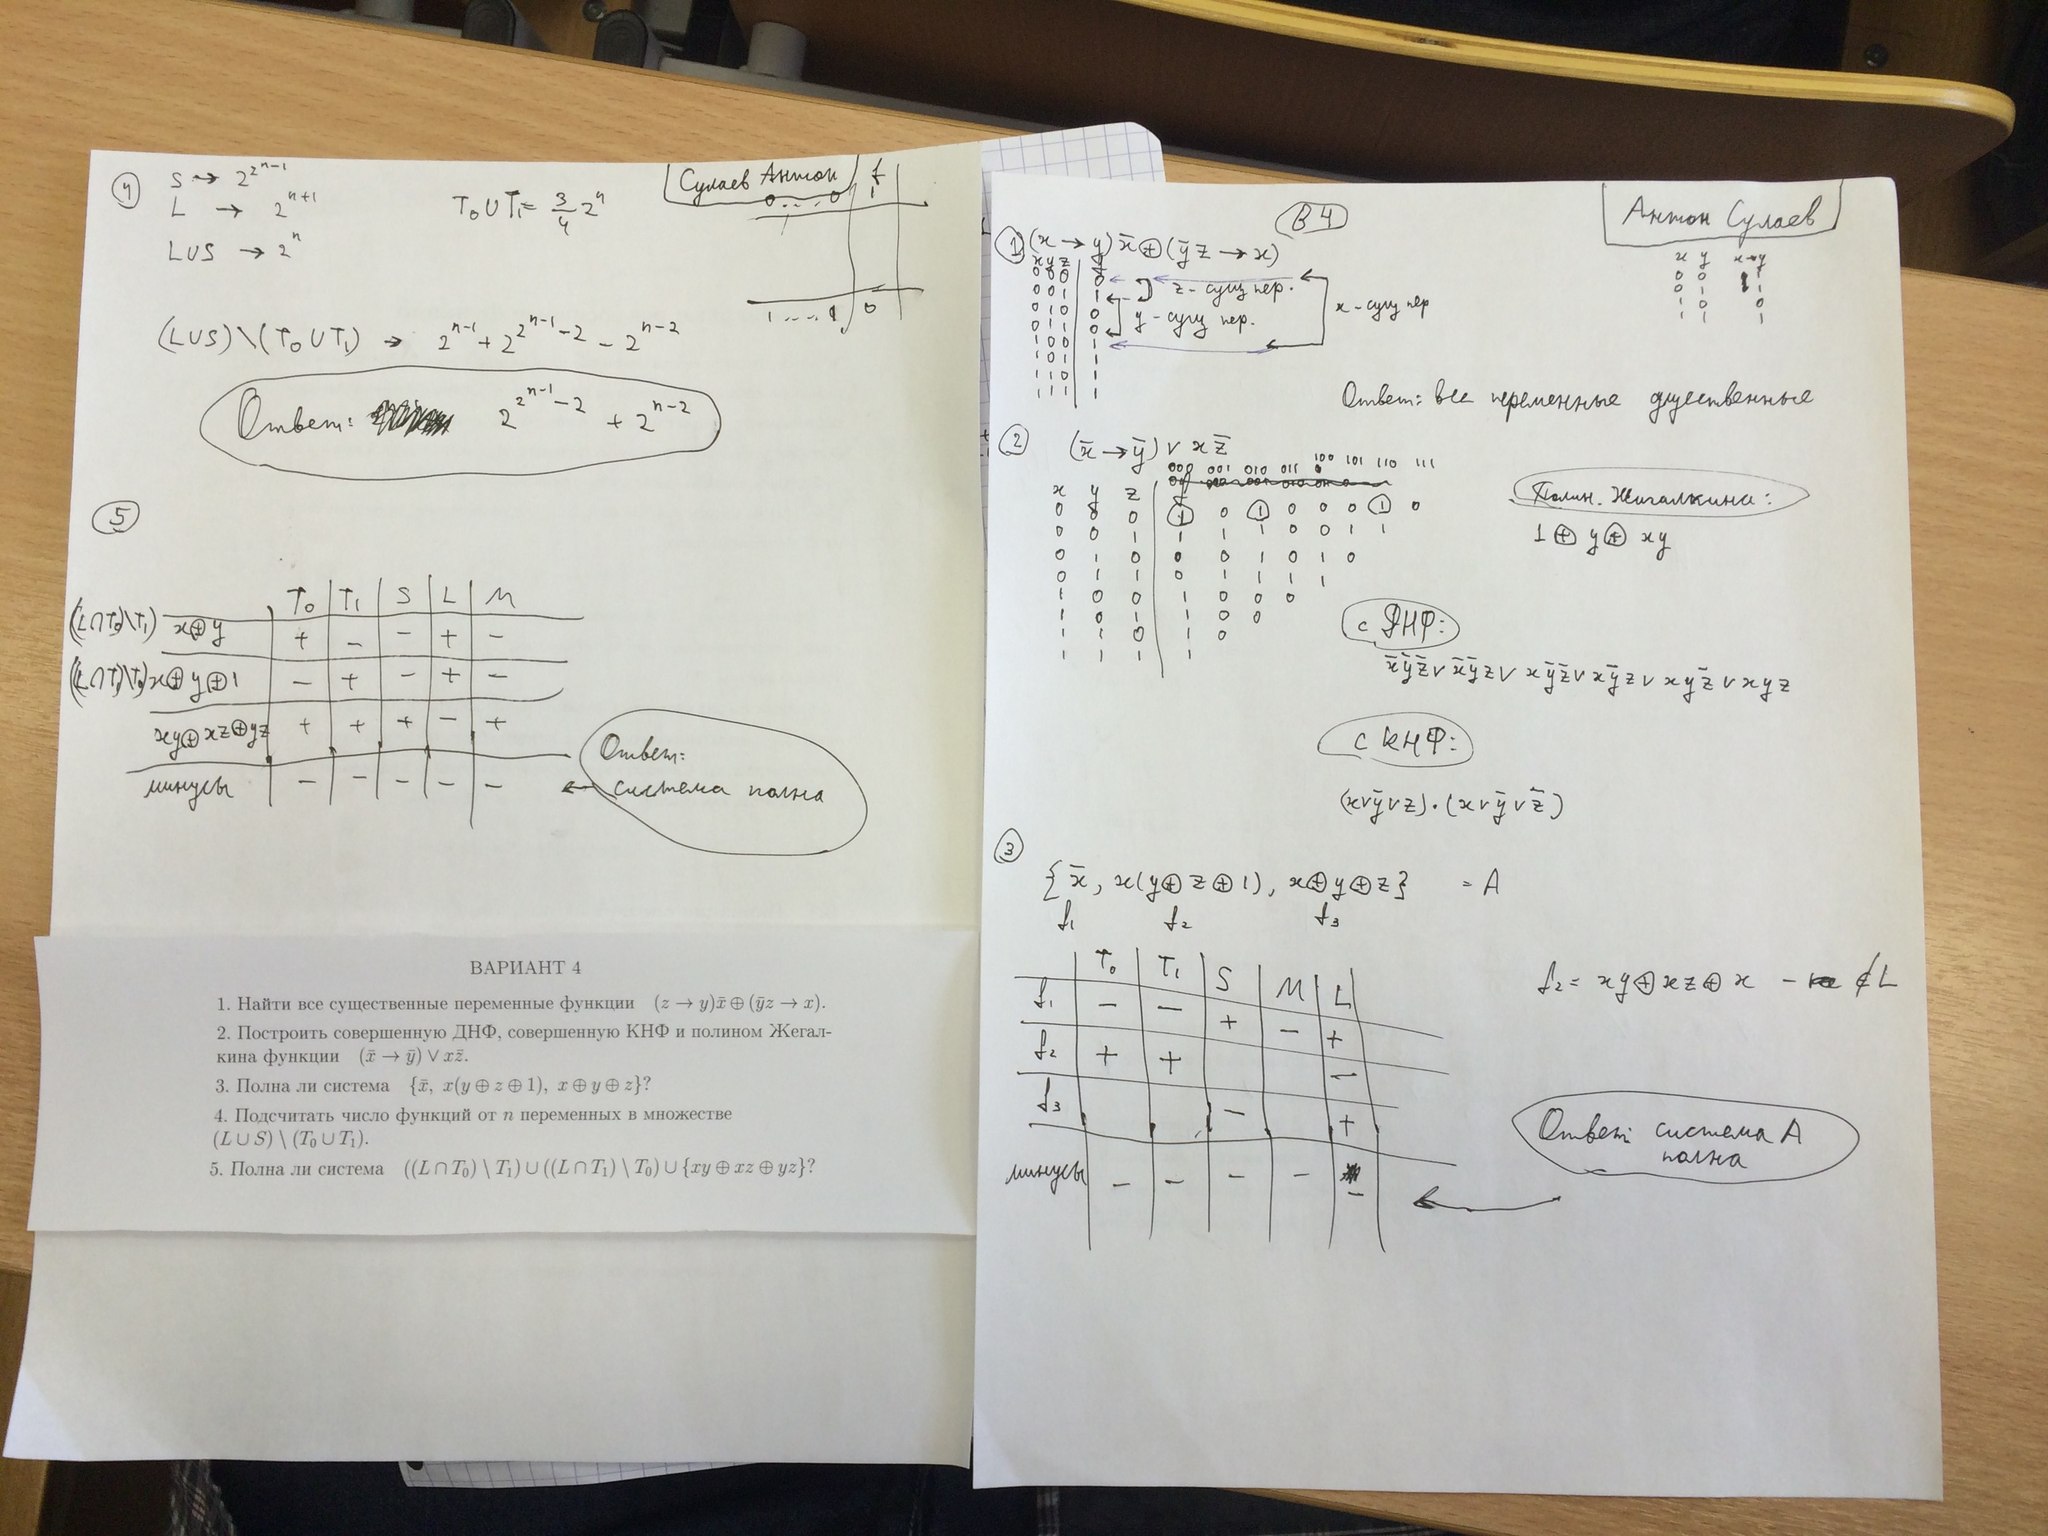 ④ S → 2^{2^{n-1}}
L → 2^{n+1}
LUS → 2^n
T₀ ∪ T₁ = 3/4 2^n
Сулаев Антон
f
0....0 1
1...1 0
(LUS)\(T₀UT₁) → 2^{n-1} + 2^{2^{n-1}-2} - 2^{n-2}
Ответ: 2^{2^{n-1}-2} + 2^{n-2}
⑤
T₀ T₁ S L M
((L∩T₀)\T₁) x⊕y + − − + −
((L∩T₁)\T₀) x⊕y⊕1 − + − + −
xy⊕xz⊕yz + + + − +
минусы − − − − −
Ответ:
система полна
ВАРИАНТ 4
1. Найти все существенные переменные функции (z → y)x̄ ⊕ (ȳz → x).
2. Построить совершенную ДНФ, совершенную КНФ и полином Жегал-
кина функции (x̄ → ȳ) ∨ xz̄.
3. Полна ли система {x̄, x(y ⊕ z ⊕ 1), x ⊕ y ⊕ z}?
4. Подсчитать число функций от n переменных в множестве
(L ∪ S) \ (T₀ ∪ T₁).
5. Полна ли система ((L ∩ T₀) \ T₁) ∪ ((L ∩ T₁) \ T₀) ∪ {xy ⊕ xz ⊕ yz}?
В 4
Антон Сулаев
① (x → y) x̄ ⊕ (ȳz → x)
x y z
0 0 0 0
0 0 1 1
0 1 0 0
0 1 1 0
1 0 0 1
1 0 1 1
1 1 0 1
1 1 1 1
z - сущ пер.
y - сущ пер.
x - сущ пер
x y x→y
0 0 1
0 1 1
1 0 0
1 1 1
Ответ: все переменные
② (x̄ → ȳ) ∨ xz̄
000 001 010 011 100 101 110 111
x y z f
0 0 0 1 0 1 0 0 0 1 0
0 0 1 1 1 1 0 0 1 1
0 1 0 0 0 1 0 1 0
0 1 1 0 1 1 1 1
1 0 0 1 0 0 0
1 0 1 1 0 0
1 1 0 1 0
1 1 1 1
Полин. Жигалкина:
1 ⊕ y ⊕ xy
с ДНФ:
x̄ȳz̄ ∨ x̄ȳz ∨ xȳz̄ ∨ xȳz ∨ xyz̄ ∨ xyz
с КНФ:
(x∨ȳ∨z)·(x∨ȳ∨z̄)
③
{x̄, x(y⊕z⊕1), x⊕y⊕z} = A
f₁ f₂ f₃
T₀ T₁ S M L
f₁ − − + − +
f₂ + + −
f₃ − +
минусы − − − − −
f₂ = xy⊕xz⊕x − ∉ L
Ответ: система A
полна